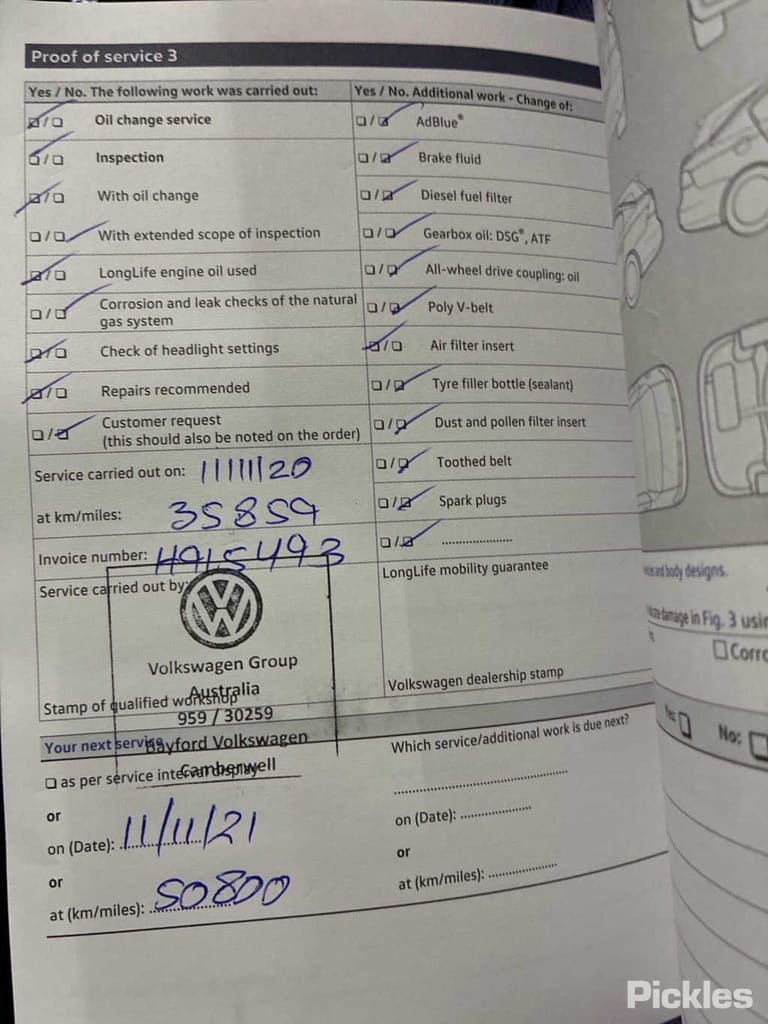 Proof of service 3
Yes / No. The following work was carried out:
Oil change service
Inspection
With oil change
With extended scope of inspection
LongLife engine oil used
Corrosion and leak checks of the natural
gas system
Check of headlight settings
Repairs recommended
Customer request
(this should also be noted on the order)
Service carried out on: 11/11/20
at km/miles: 35859
Invoice number: H915493
Service carried out by:
Volkswagen Group
Australia
Stamp of qualified workshop
959 / 30259
Bayford Volkswagen
Camberwell
Yes / No. Additional work - Change of:
AdBlue®
Brake fluid
Diesel fuel filter
Gearbox oil: DSG®, ATF
All-wheel drive coupling: oil
Poly V-belt
Air filter insert
Tyre filler bottle (sealant)
Dust and pollen filter insert
Toothed belt
Spark plugs
LongLife mobility guarantee
Volkswagen dealership stamp
Your next service
as per service interval display
or
on (Date): 11/11/21
or
at (km/miles): 50800
Which service/additional work is due next?
on (Date):
or
at (km/miles):
and body designs.
damage in Fig. 3
No:
Pickles